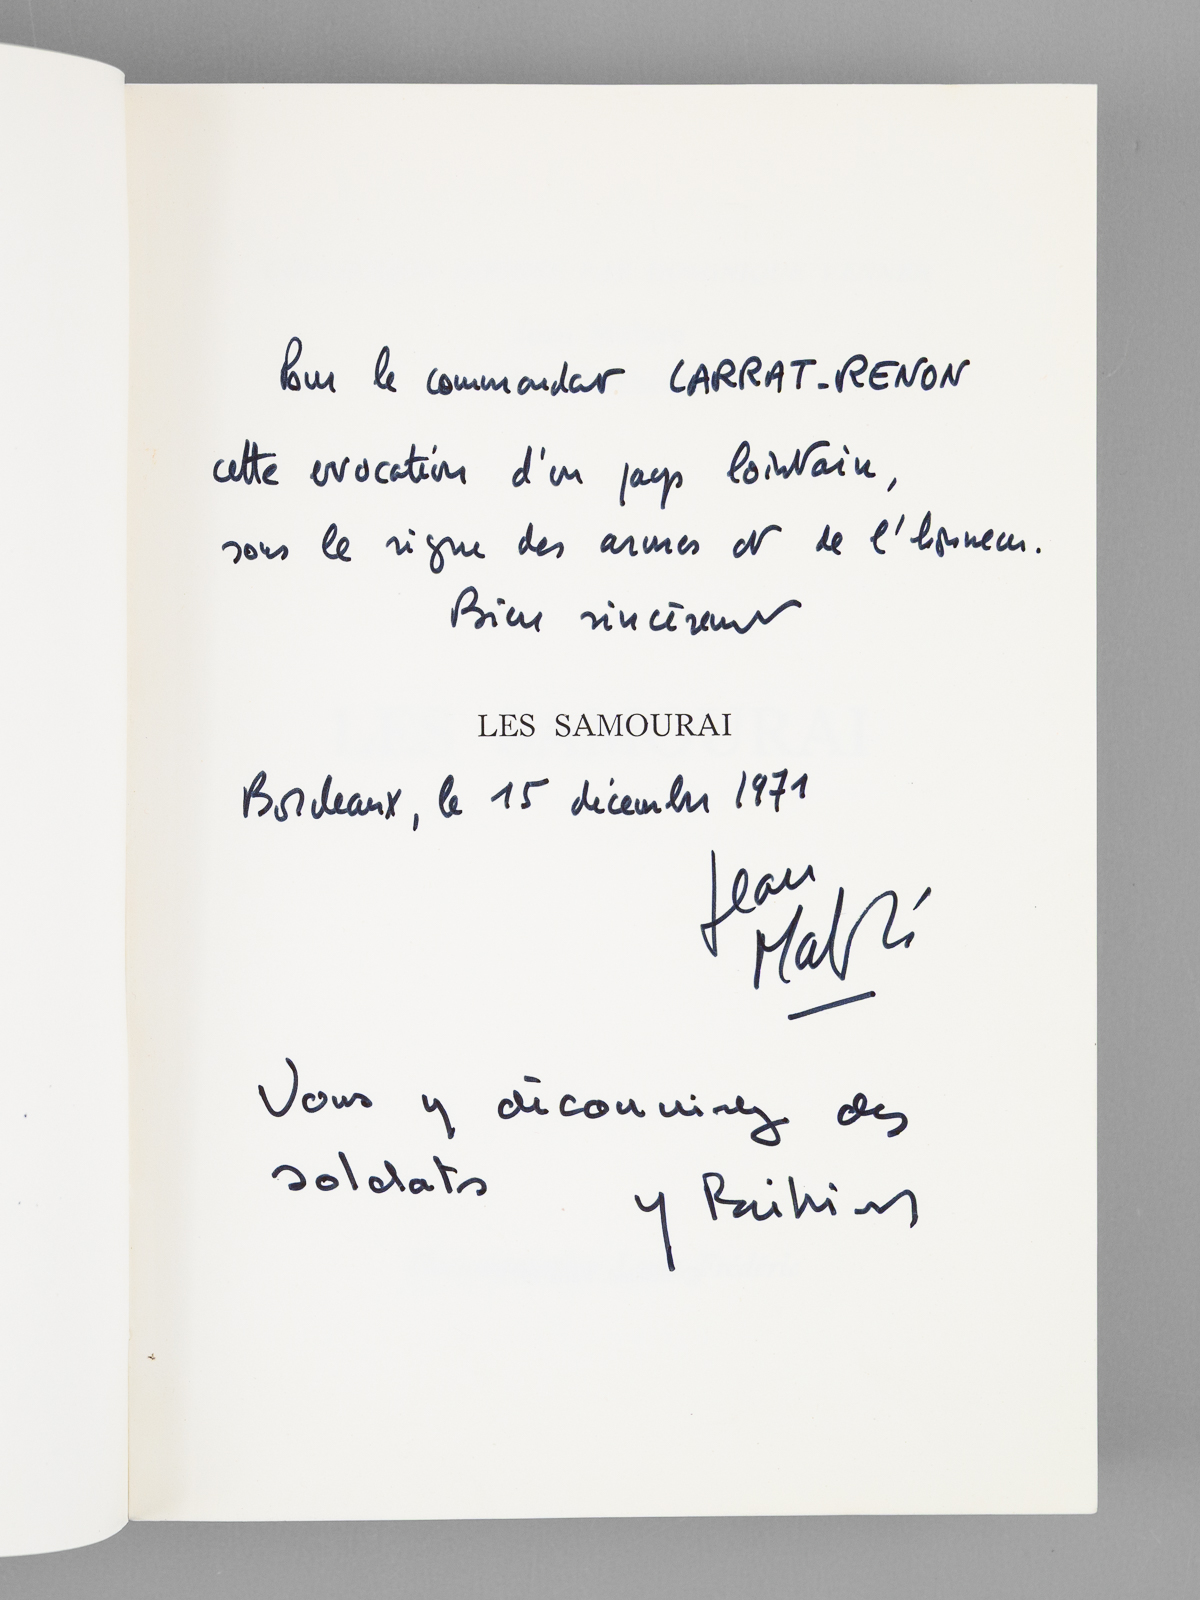 Pour le commandant CARRAT-RENON
cette evocation d'un pays lointain,
sous le signe des armes et de l'honneur.
Bien sincèrement
LES SAMOURAI
Bordeaux, le 15 décembre 1971
Jean
Mabiré
Vous y découvrirez des
soldats
Y Bréhèret